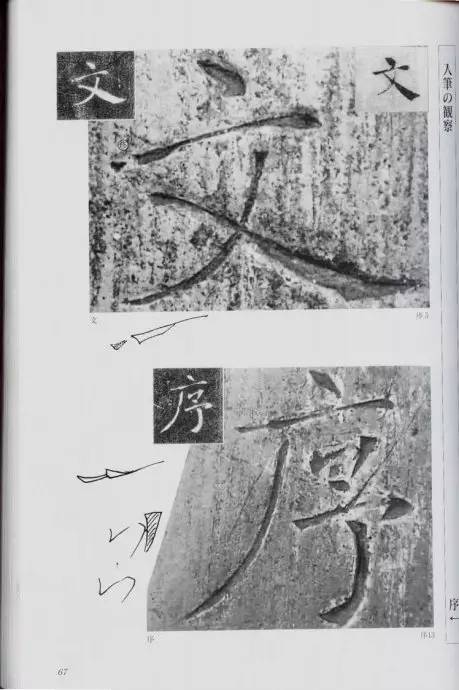 入筆の観察
文
文
文
文
序5
序
序
序
序13
序
67